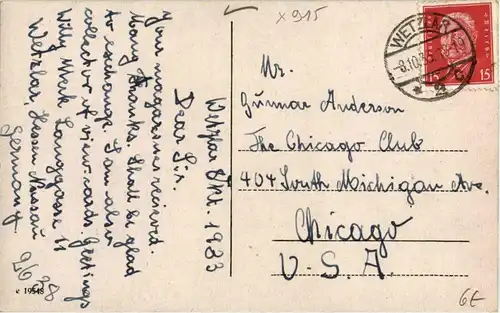 x 915
WETZLAR
15
Wetzlar Okt. 1933
Dear Sir.
Your magazines recieved.
Many thanks. Shall be glad
to exchange. I am also
collector of view-cards. Greetings
Willy Langgasse 11
Wetzlar, Hessen Nassau
Germany
v 19548
Mr.
Gunnar Anderson
The Chicago Club
404 South Michigan Ave.
Chicago
U.S.A.
6€